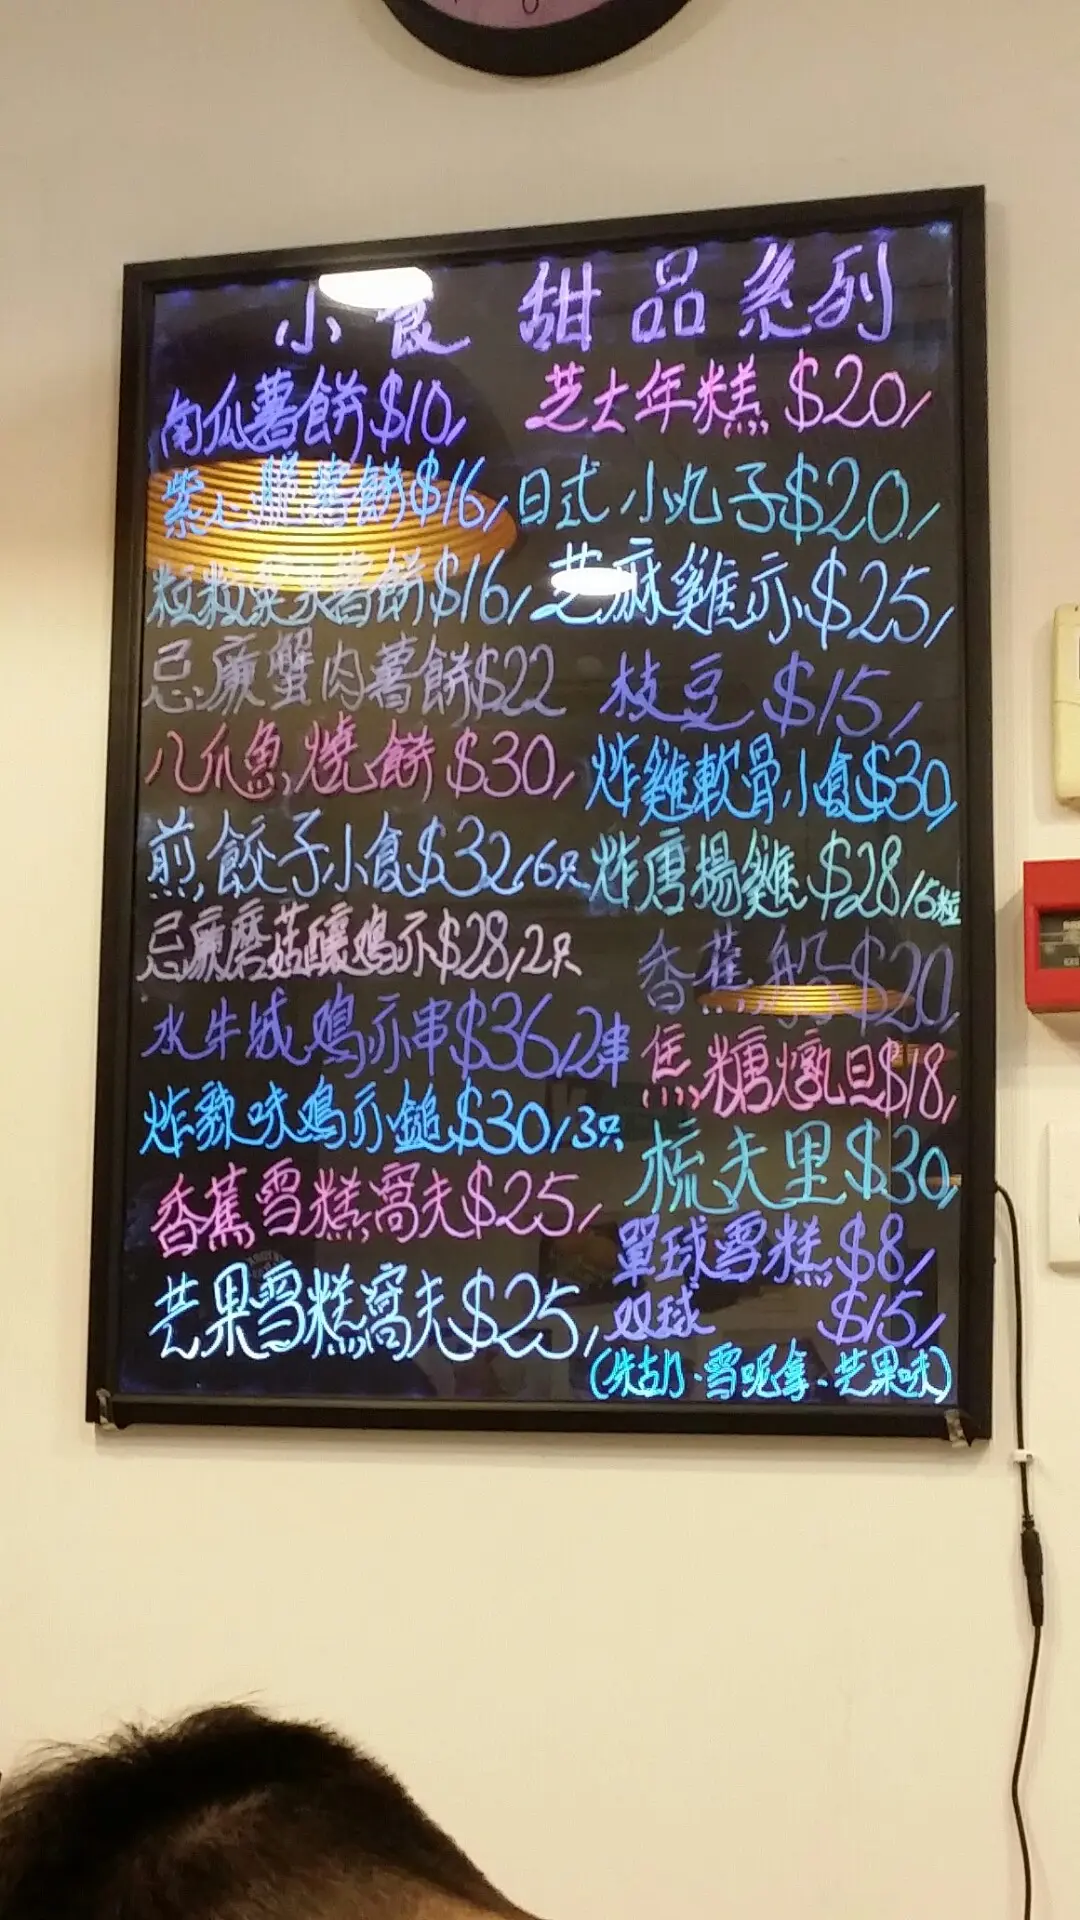 小食 甜品系列
南瓜薯餅$10/
紫心番薯餅$16/
粒粒粟米薯餅$16/
忌廉蟹肉薯餅$22
八爪魚燒餅$30/
煎餃子小食$32/6只
忌廉磨菇釀鸡亦$28/2只
水牛城鸡亦串$36/2串
炸辣味鸡亦鎚$30/3只
香蕉雪糕窩夫$25/
芒果雪糕窩夫$25/
芝士年糕$20/
日式小丸子$20/
芝麻雞亦$25/
枝豆$15/
炸雞軟骨小食$30/
炸唐揚雞$28/5粒
香蕉船$20/
焦糖燉旦$18/
梳夫里$30/
單球雪糕$8/
双球$15/
(朱古力、雪呢拿、芒果味)